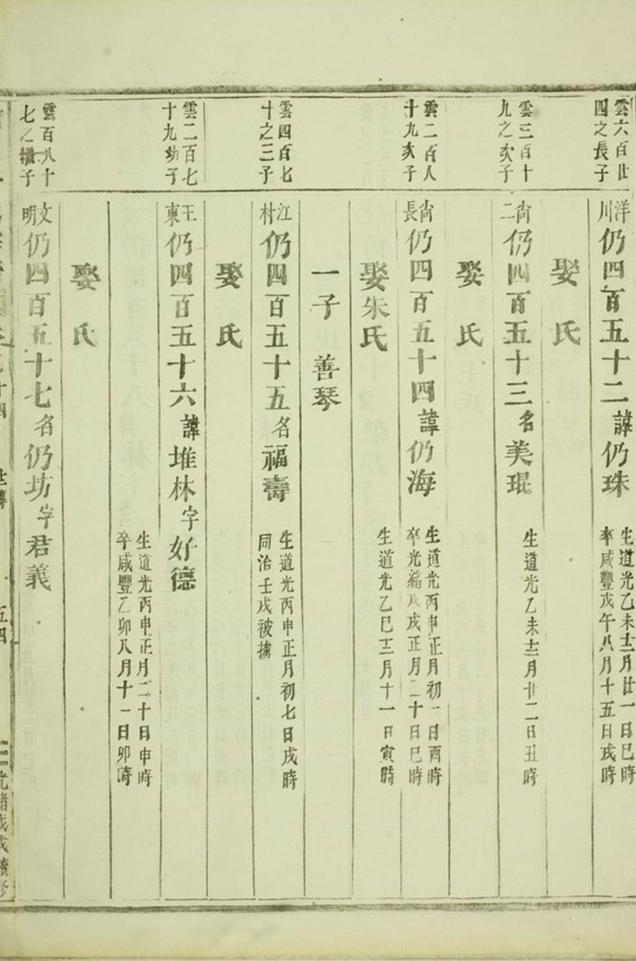 雲六百廿
四之長子
洋川仍四百五十二諱仍珠
生道光乙未十二月廿一日巳時
卒咸豐戊午八月十五日戌時
娶 氏
雲三百十
九之次子
尚二仍四百五十三名美琨
生道光乙未十二月廿二日丑時
娶 氏
雲二百八
十九次子
尚長仍四百五十四諱仍海
生道光丙申正月初一日酉時
卒光緒戊戌正月二十日巳時
娶朱氏
生道光乙巳十二月十一日寅時
一子 善琴
雲四百七
十之三子
江村仍四百五十五名福壽
生道光丙申正月初七日戌時
同治壬戌被擄
娶 氏
雲二百七
十九幼子
王東仍四百五十六諱堆林字好德
生道光丙申正月二十日申時
卒咸豐乙卯八月十一日卯時
娶 氏
雲百八十
七之繼子
文明仍四百五十七名仍坊字君義
世傳
五四
光緒戊戌續修